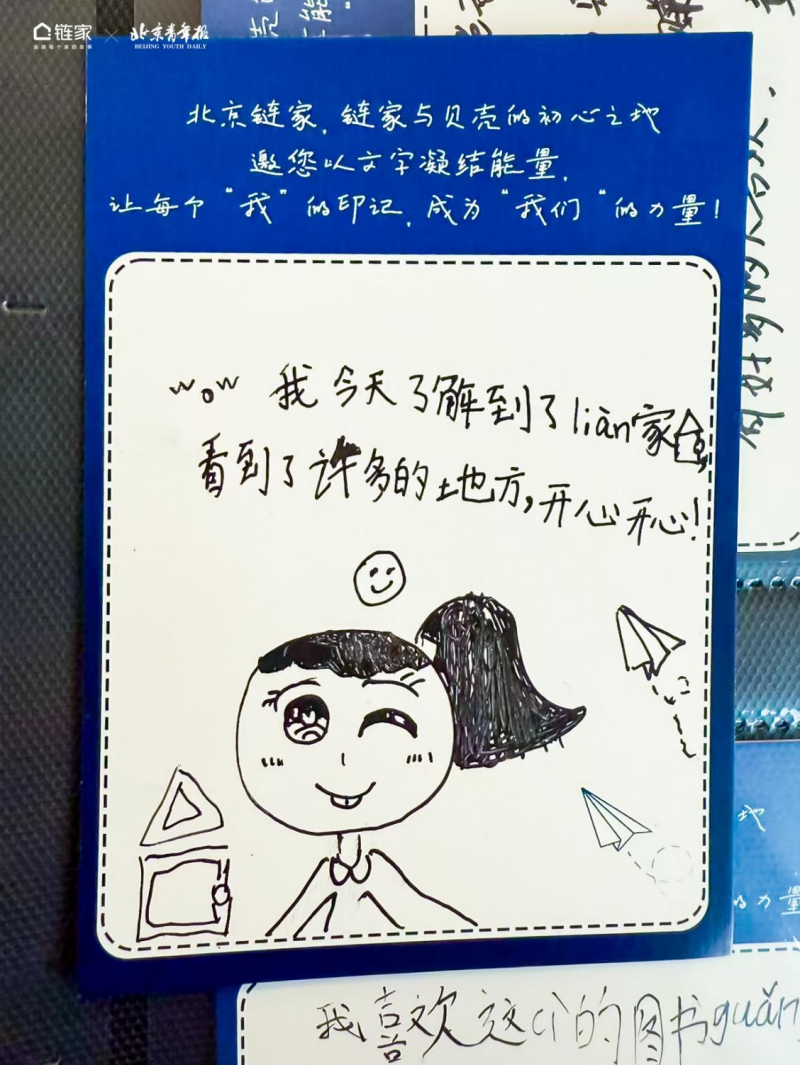 链家
×
北京青年报
BEIJING YOUTH DAILY
北京链家，链家与贝壳的初心之地
邀您以文字凝结能量，
让每个“我”的印记，成为“我们”的力量！
wow 我今天了解到了liàn家
看到了许多的地方，开心开心！
地
的力量
我喜欢这个的图书guǎn